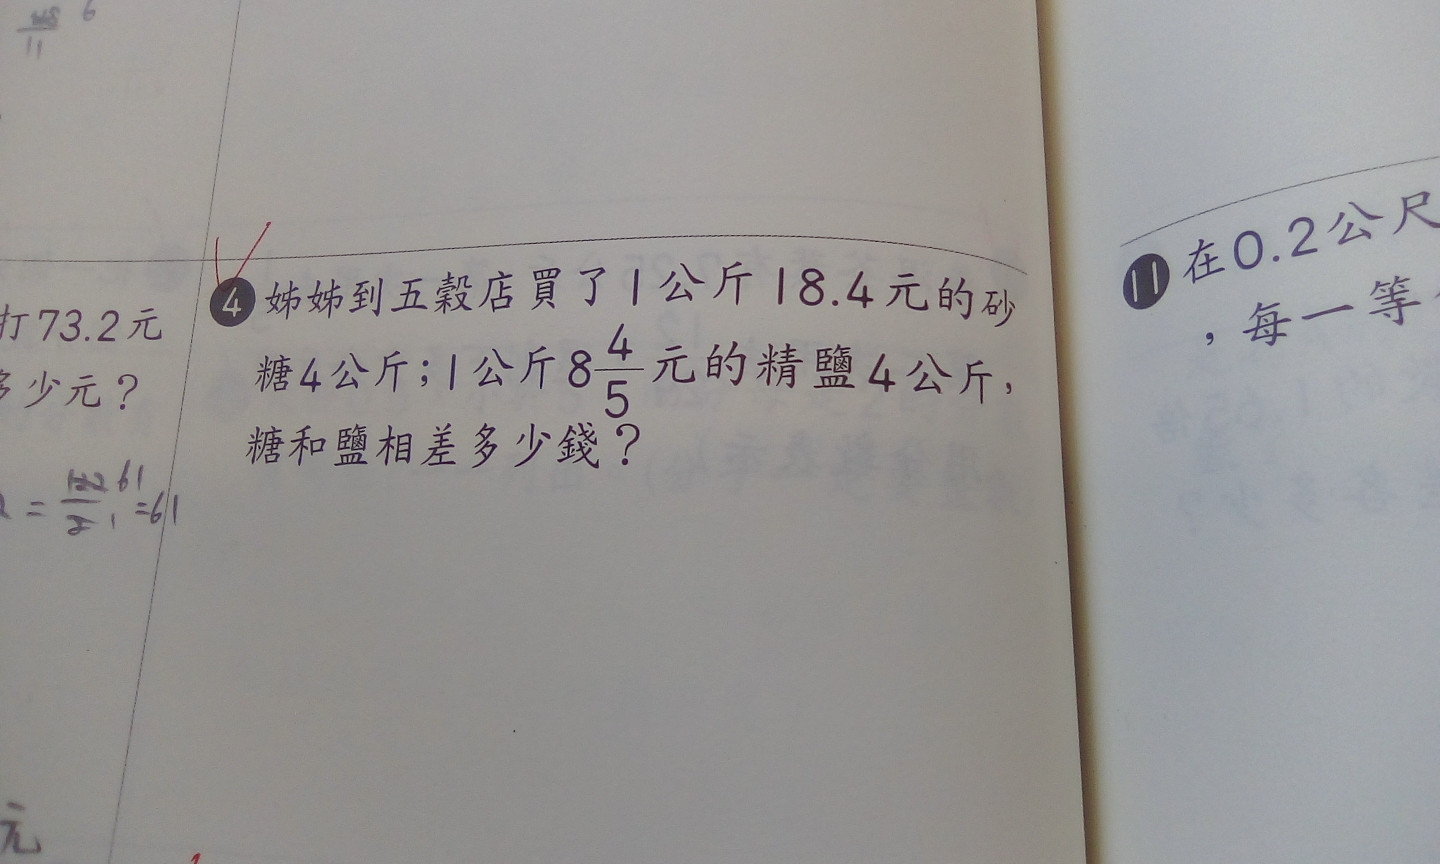 11
打73.2元
多少元？
= 122 61 / 2 1 = 61
元
4 姊姊到五穀店買了1公斤18.4元的砂
糖4公斤；1公斤8 4/5 元的精鹽4公斤，
糖和鹽相差多少錢？
11 在0.2公尺
，每一等